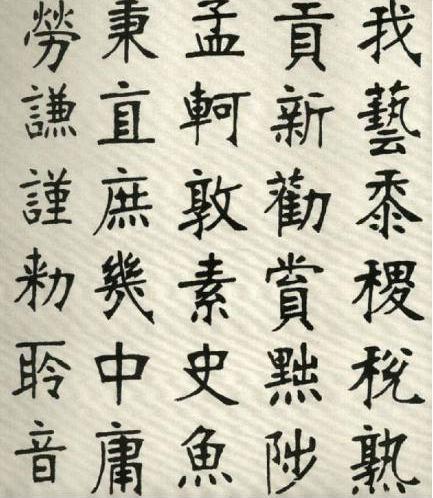 我藝黍稷稅熟
貢新勸賞黜陟
孟軻敦素史魚
秉直庶幾中庸
勞謙謹勅聆音